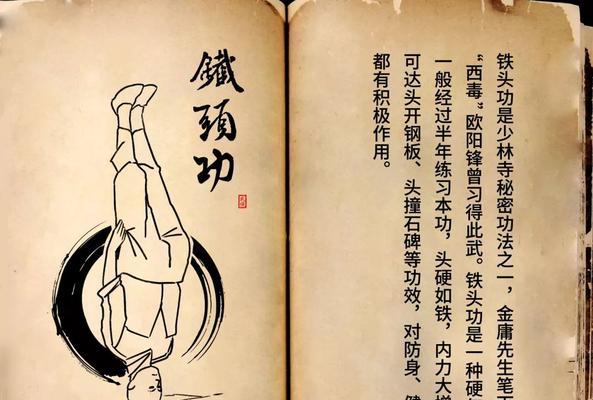 鐵頭功
铁头功是少林寺秘密功法之一，金庸先生笔
“西毒”欧阳锋曾习得此武。铁头功是一种硬
一般经过半年练习本功，头硬如铁，内力大增
可达头开钢板、头撞石碑等功效，对防身、健
都有积极作用。